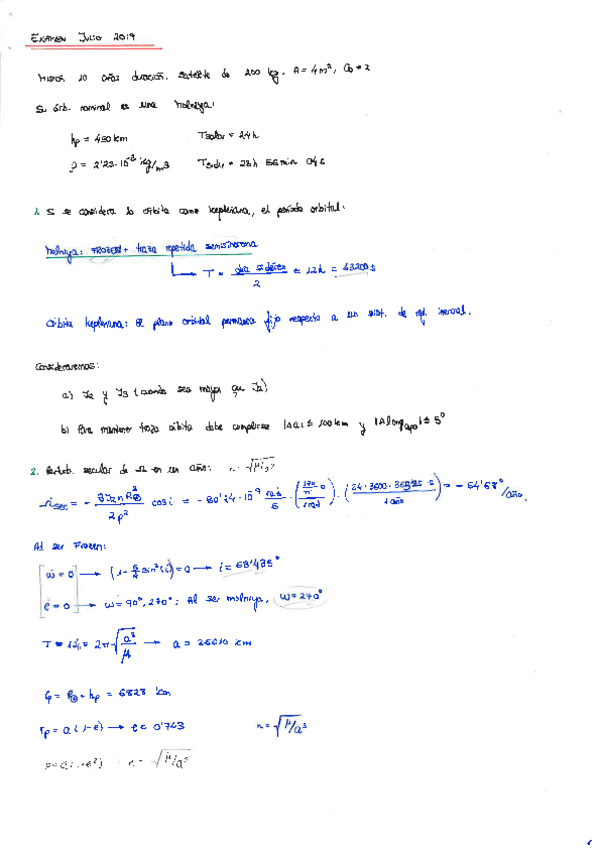 EXAMEN JULIO 2019
Misión 10 años duración. Satélite de 200 kg. A = 4m², CD = 2
Su órb. nominal es una Molniya:
hp = 450 km Tsolar = 24h
ρ = 2'23·10⁻² kg/m³ Tsider = 23h 56min 04s
1. Si se considera la órbita como kepleriana, el período orbital:
Molniya: FROZEN + traza repetida semisíncrona
T = día sidéreo / 2 = 12h = 43200 s
Órbita kepleriana: El plano orbital permanece fijo respecto a un sist. de ref. inercial.
Consideraremos:
a) J2 y J3 (cuando sea mayor que J2)
b) Para mantener traza órbita debe cumplirse |Δa| ≤ 100km y |Δlong apo| ≤ 5°
2. Perturb. secular de Ω en un año: n = √μ/a³
Ωsec = - 3J2nR⊕² / 2p² cos i = - 80'24·10⁻⁹ rad/s · (180/π ° / 1 rad) · (24·3600·365'25 s / 1 año) = - 54'68°/año.
Al ser Frozen:
ω̇ = 0 → (1 - 5/4 sin²(i)) = 0 → i = 63'435°
ė = 0 → ω = 90°, 270°: Al ser molniya, ω = 270°
T = 12h = 2π √a³/μ → a = 26610 km
rp = R⊕ + hp = 6828 km
rp = a(1-e) → e = 0'743 n = √μ/a³
p = a(1-e²) n = √μ/a³